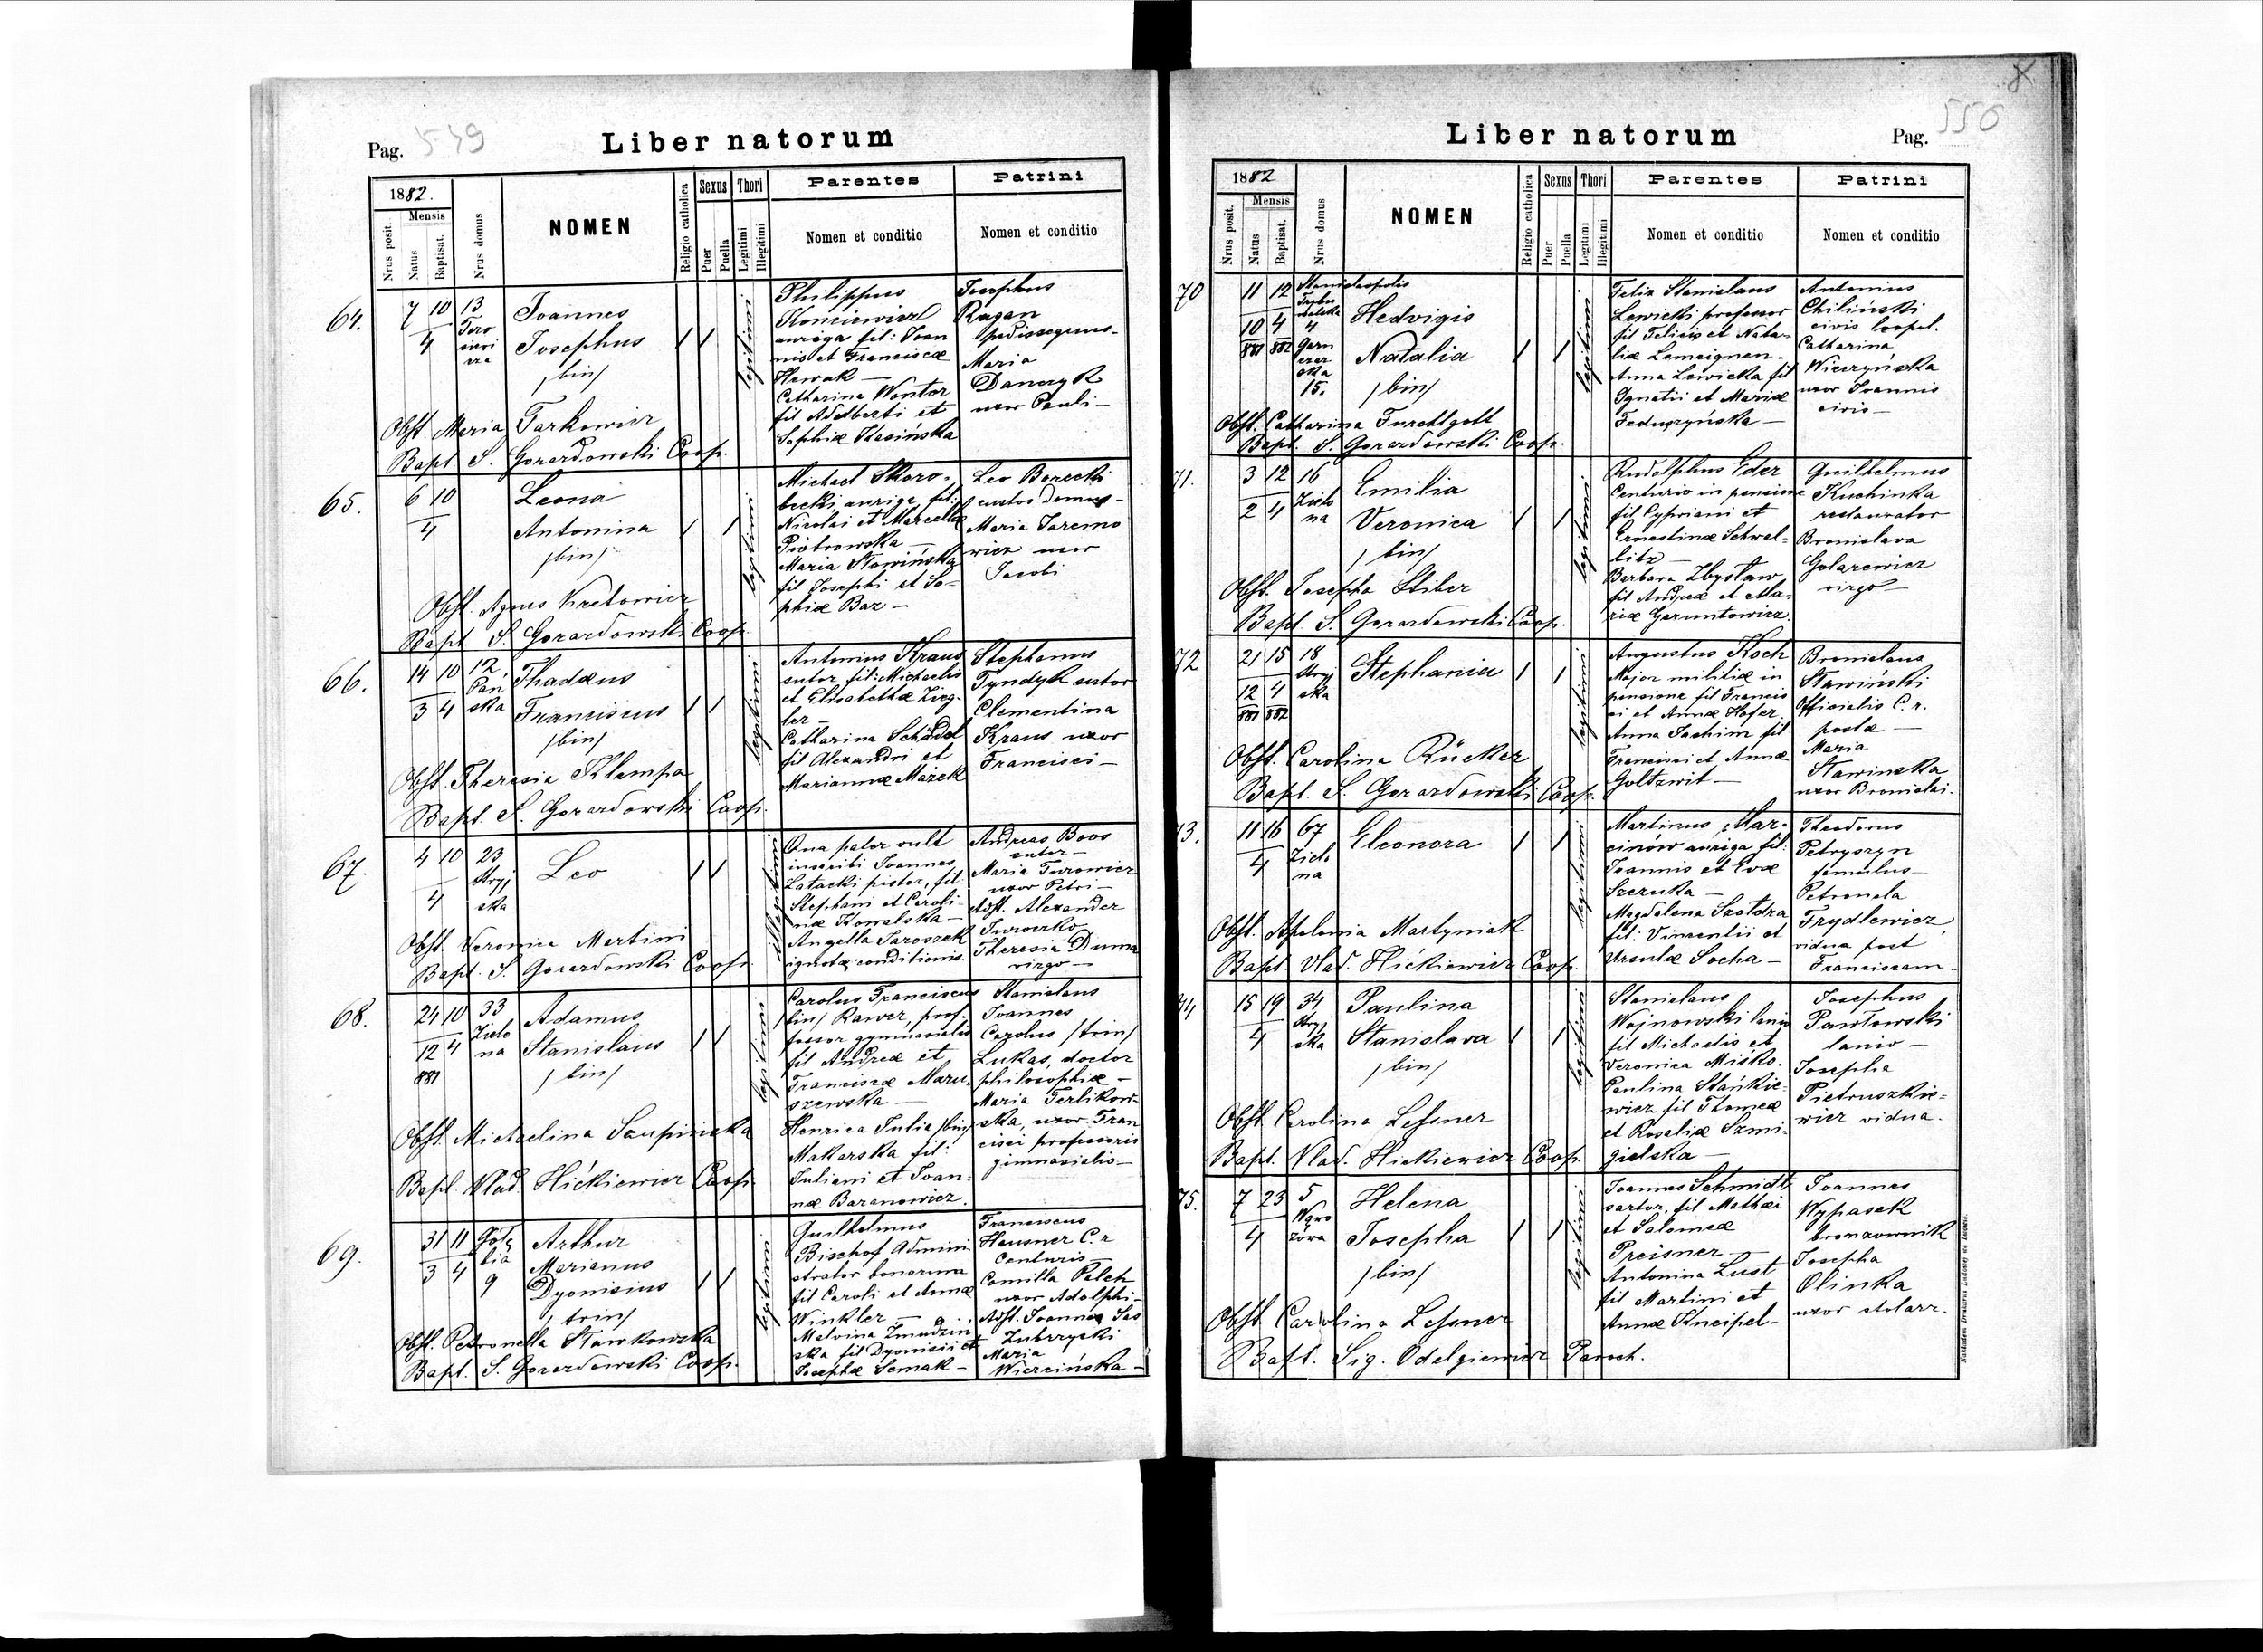 Pag. 549
Liber natorum
1882.
Nrus posit.
Mensis
Natus
Baptisat.
Nrus domus
NOMEN
Religio catholica
Sexus
Puer
Puella
Thori
Legitimi
Illegitimi
Parentes
Nomen et conditio
Patrini
Nomen et conditio
64.
7 10 13
4
Joannes
Josephus
/bin/
legitimi
Philippus
auriga fil: Joan
nis et Franciscæ
Catharina Wontor
fil Adalberti et
Sophiæ Stasińska
Josephus
Ragan
pedissequus-
Maria
Danczyk
uxor Pauli-
Obst. Maria Tarkowicz
Bapt. S. Gorazdowski Coop.
65.
6 10
4
Leona
Antonina
/bin/
legitimi
Michael Skoro-
becki auriga fil:
Nicolai et Marcellæ
Piotrowska —
Maria Słowińska
fil Josephi et So-
phiæ Baz —
Leo Borecki
custos domus-
Maria Jaremo
wicz uxor
Jacobi
Obst. Agnes Kretowicz
Bapt S. Gorazdowski Coop.
66.
14 10 12
3 4 Pan
ska
Thadæus
Franciscus
/bin/
legitimi
Antonius Kraus
sutor fil: Michaelis
et Elisabethæ Zieg-
ler —
Catharina Schädel
fil Alexandri et
Mariannæ Mazek
Stephanus
Tyndyk sutor
Clementina
Kraus uxor
Francisci —
Obst. Theresia Klampa
Bapt. S. Gorazdowski Coop.
67.
4 10 23
4
Stryj
ska
Leo
illegitimi
Qua pater vult
inscribi Joannes
Latacki pistor, fil:
Stephani et Caroli-
næ Kowalska —
Angella Jaroszek
ignotæ conditionis.
Andreas Boos
sutor —
Maria Turowicz
uxor Petri —
Adst. Alexander
Theresia Duma
virgo —
Obst. Veronica Martini
Bapt. S. Gorazdowski Coop.
68.
24 10 33
12 4 Zielo
na
881
Adamus
Stanislaus
/bin/
legitimi
Carolus Franciscus
/bin/ Rawer, prof-
fessor gymnasialis
fil Andreæ et
Franciscæ Maru-
szewska —
Henrica Julia /bin/
Makarska fil:
Juliani et Joan-
næ Baranowicz.
Stanislaus
Joannes
Carolus /trin/
Lukas, doctor
philosophiæ —
Maria Terlikow-
ska, uxor Fran
cisci professoris
gimnasialis —
Obst. Michaelina Szupinska
Bapt. Vlad. Hićkiewicz Coop.
69.
31 11
3 4 9
Arthur
Marianus
Dyonisius
/trin/
legitimi
Guilhelmus
Bischof Admini
strator bonorum
fil Caroli et Annæ
Winkler —
Malvina Żmudzin
ska fil Dyonisii et
Josephæ Semak —
Franciscus
Hausner C. r
Centurio —
Camilla Palch
uxor Adolphi-
Adst. Joannes Sas
Zubrzycki
Maria
Wiercińska —
Obst. Petronella Stawkowska
Bapt. S. Gorazdowski Coop.
Liber natorum
Pag. 550
1882
Nrus posit.
Mensis
Natus
Baptisat.
Nrus domus
NOMEN
Religio catholica
Sexus
Puer
Puella
Thori
Legitimi
Illegitimi
Parentes
Nomen et conditio
Patrini
Nomen et conditio
70
11 12 Stanislaopolis
10 4 4
881 882
15.
Hedvigis
Natalia
/bin/
legitimi
Felix Stanislaus
Lewicki professor
fil Felicis et Nata-
liæ Lemeignen-
Anna Lewicka fil
Ignatii et Mariæ
Feduszyńska —
Antonius
Chiliński
civis leopol.
Catharina
Wieczyńska
uxor Joannis
civis —
Obst. Catharina Furchtgott
Bapt. S. Gorazdowski Coop.
71.
3 12 16
2 4 Zielo
na
Emilia
Veronica
/bin/
legitimi
Rudolphus Eder
Centurio in pensione
fil Cypriani et
Ernestinæ Schwal-
litz —
Barbara Zbysław
fil Andreæ et Ma-
riæ Geruntowicz.
Guilhelmus
Kuchinka
restaurator
Bronislava
Golarewicz
virgo —
Obst. Josepha Stiber
Bapt. S. Gorazdowski Coop.
72
21 15 18
12 4 Stryj
ska
881 882
Stephania
legitimi
Augustus Koch
Major militiæ in
pensione fil Francis
ci et Annæ Hofer
Anna Jachim fil
Francisci et Annæ
Goltzwit —
Bronislaus
Sławiński
Officialis C. r.
postæ —
Maria
Sławinska
uxor Bronislai.
Obst. Carolina Rücker
Bapt. S. Gorazdowski Coop.
73.
11 16 67
4 Zielo
na
Eleonora
legitimi
Martinus Mar-
cinów auriga fil:
Joannis et Evæ
Szczuka —
Magdalena Szołdra
fil: Vincentii et
Ursulæ Socha —
Theodorus
Petryszyn
famulus —
Petronela
Frydlewicz,
vidua post
Franciscum-
Obst. Apolonia Martyniak
Bapt. Vlad. Hićkiewicz Coop.
74
15 19 34
4 Stryj
ska
Paulina
Stanislava
/bin/
legitimi
Stanislaus
Wojnowski lanio
fil Michaelis et
Veronica Miśko.
Paulina Stańkie-
wicz fil Thomæ
et Rosaliæ Szmi-
gielska —
Josephus
Pawłowski
lanio —
Josepha
Pietruszkie-
wicz vidua.
Obst. Carolina Lessner
Bapt. Vlad. Hickiewicz Coop.
75.
7 23 5
4
Helena
Josepha
/bin/
legitimi
Joannes Schmidt
sartor, fil Mathæi
et Salomeæ
Preisner —
Antonina Lust
fil Martini et
Annæ Kneipel-
Joannes
Wypasek
bronzownik
Josepha
Olinka
uxor stolarz.
Obst. Carolina Lessner
Bapt. Sig. Odelgiewicz Paroch.
Nakładem Drukarni Ludowej we Lwowie.